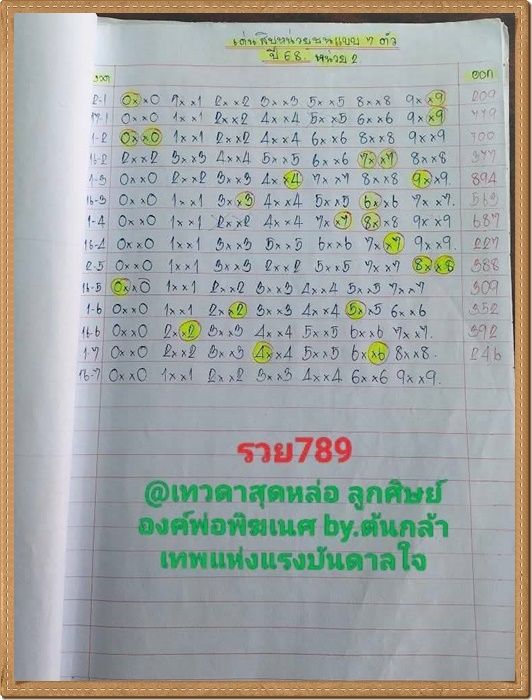 เด่นสิบหน่วยชนแบบ 7 ตัว
ปี 68. หน่วย 2
งวด ออก
2-1 0x×0 7x×1 2x×2 3x×3 5x×5 8x×8 9x×9 209
17-1 0x×0 1x×1 2x×2 4x×4 5x×5 6x×6 9x×9 779
1-2 0x×0 1x×1 2x×2 4x×4 6x×6 8x×8 9x×9 700
16-2 2x×2 3x×3 4x×4 5x×5 6x×6 7x×7 8x×8 377
1-3 0x×0 2x×2 3x×3 4x×4 7x×7 8x×8 9x×9. 894
16-3 0x×0 1x×1 3x×3 4x×4 5x×5 6x×6 7x×7. 563
1-4 0x×0 1x×1 2x×2 4x×4 7x×7 8x×8 9x×9 687
16-4 0x×0 1x×1 3x×3 5x×5 6x×6 7x×7 9x×9. 227
2-5 0x×0 1x×1 3x×3 2x×2 5x×5 7x×7 8x×8 388
16-5 0x×0 1x×1 2x×2 3x×3 4x×4 5x×5 7x×7 309
1-6 0x×0 1x×1 2x×2 3x×3 4x×4 5x×5 6x×6 352
16-6 0x×0 2x×2 3x×3 4x×4 5x×5 6x×6 7x×7. 392
1-7 0x×0 2x×2 3x×3 4x×4 5x×5 6x×6 8x×8. 246
16-7 0x×0 1x×1 2x×2 3x×3 4x×4 6x×6 9x×9.
รวย789
@เทวดาสุดหล่อ ลูกศิษย์
องค์พ่อพิฆเนศ by.ต้นกล้า
เทพแห่งแรงบันดาลใจ